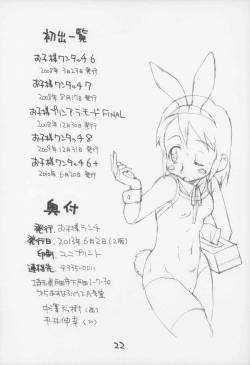 初出一覧
お子様ランチ46
2008年3月23日 発行
お子様ランチ47
2008年8月17日 発行
お子様プリン・ア・ラ・モード FINAL
2008年12月30日 発行
お子様ランチ48
2009年12月31日 発行
お子様ランチ46+
2010年6月20日 発行
奥付
発行. お子様ランチ
発行日. 2013年6月2日(2版)
印刷. ユニプリント
連絡先. 〒335-0011
埼玉県戸田市下戸田1-7-30
22